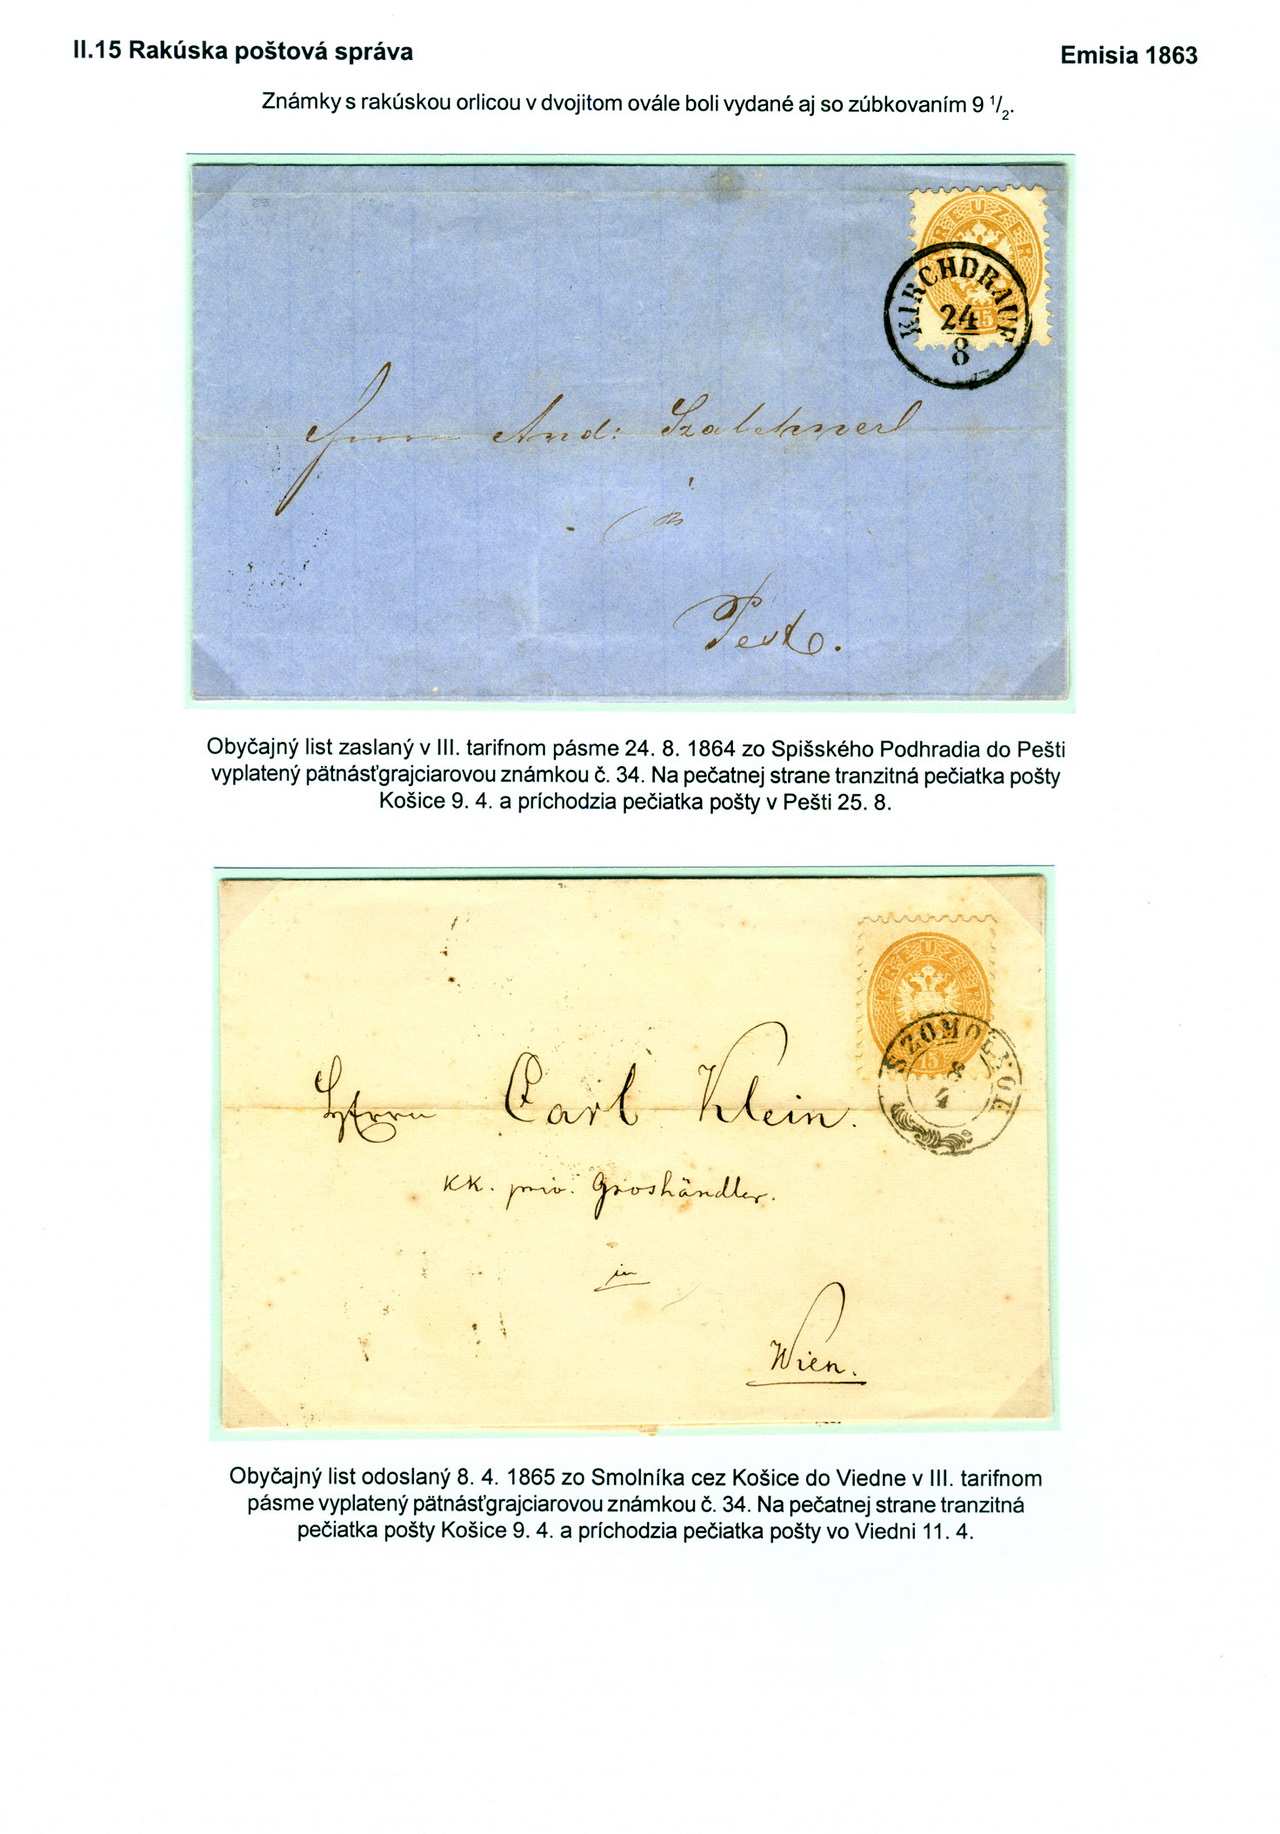 II.15 Rakúska poštová správa
Emisia 1863
Známky s rakúskou orlicou v dvojitom ovále boli vydané aj so zúbkovaním 9 1/2.
KREUZER
15
KIRCHDRAUF
24
8
Herrn And: Szalchnerl
Pest.
Obyčajný list zaslaný v III. tarifnom pásme 24. 8. 1864 zo Spišského Podhradia do Pešti
vyplatený pätnásťgrajciarovou známkou č. 34. Na pečatnej strane tranzitná pečiatka pošty
Košice 9. 4. a príchodzia pečiatka pošty v Pešti 25. 8.
KREUZER
15
SZOMOLNOK
8
4
Herrn Carl Klein.
KK. priv. Groshändler.
in
Wien.
Obyčajný list odoslaný 8. 4. 1865 zo Smolníka cez Košice do Viedne v III. tarifnom
pásme vyplatený pätnásťgrajciarovou známkou č. 34. Na pečatnej strane tranzitná
pečiatka pošty Košice 9. 4. a príchodzia pečiatka pošty vo Viedni 11. 4.